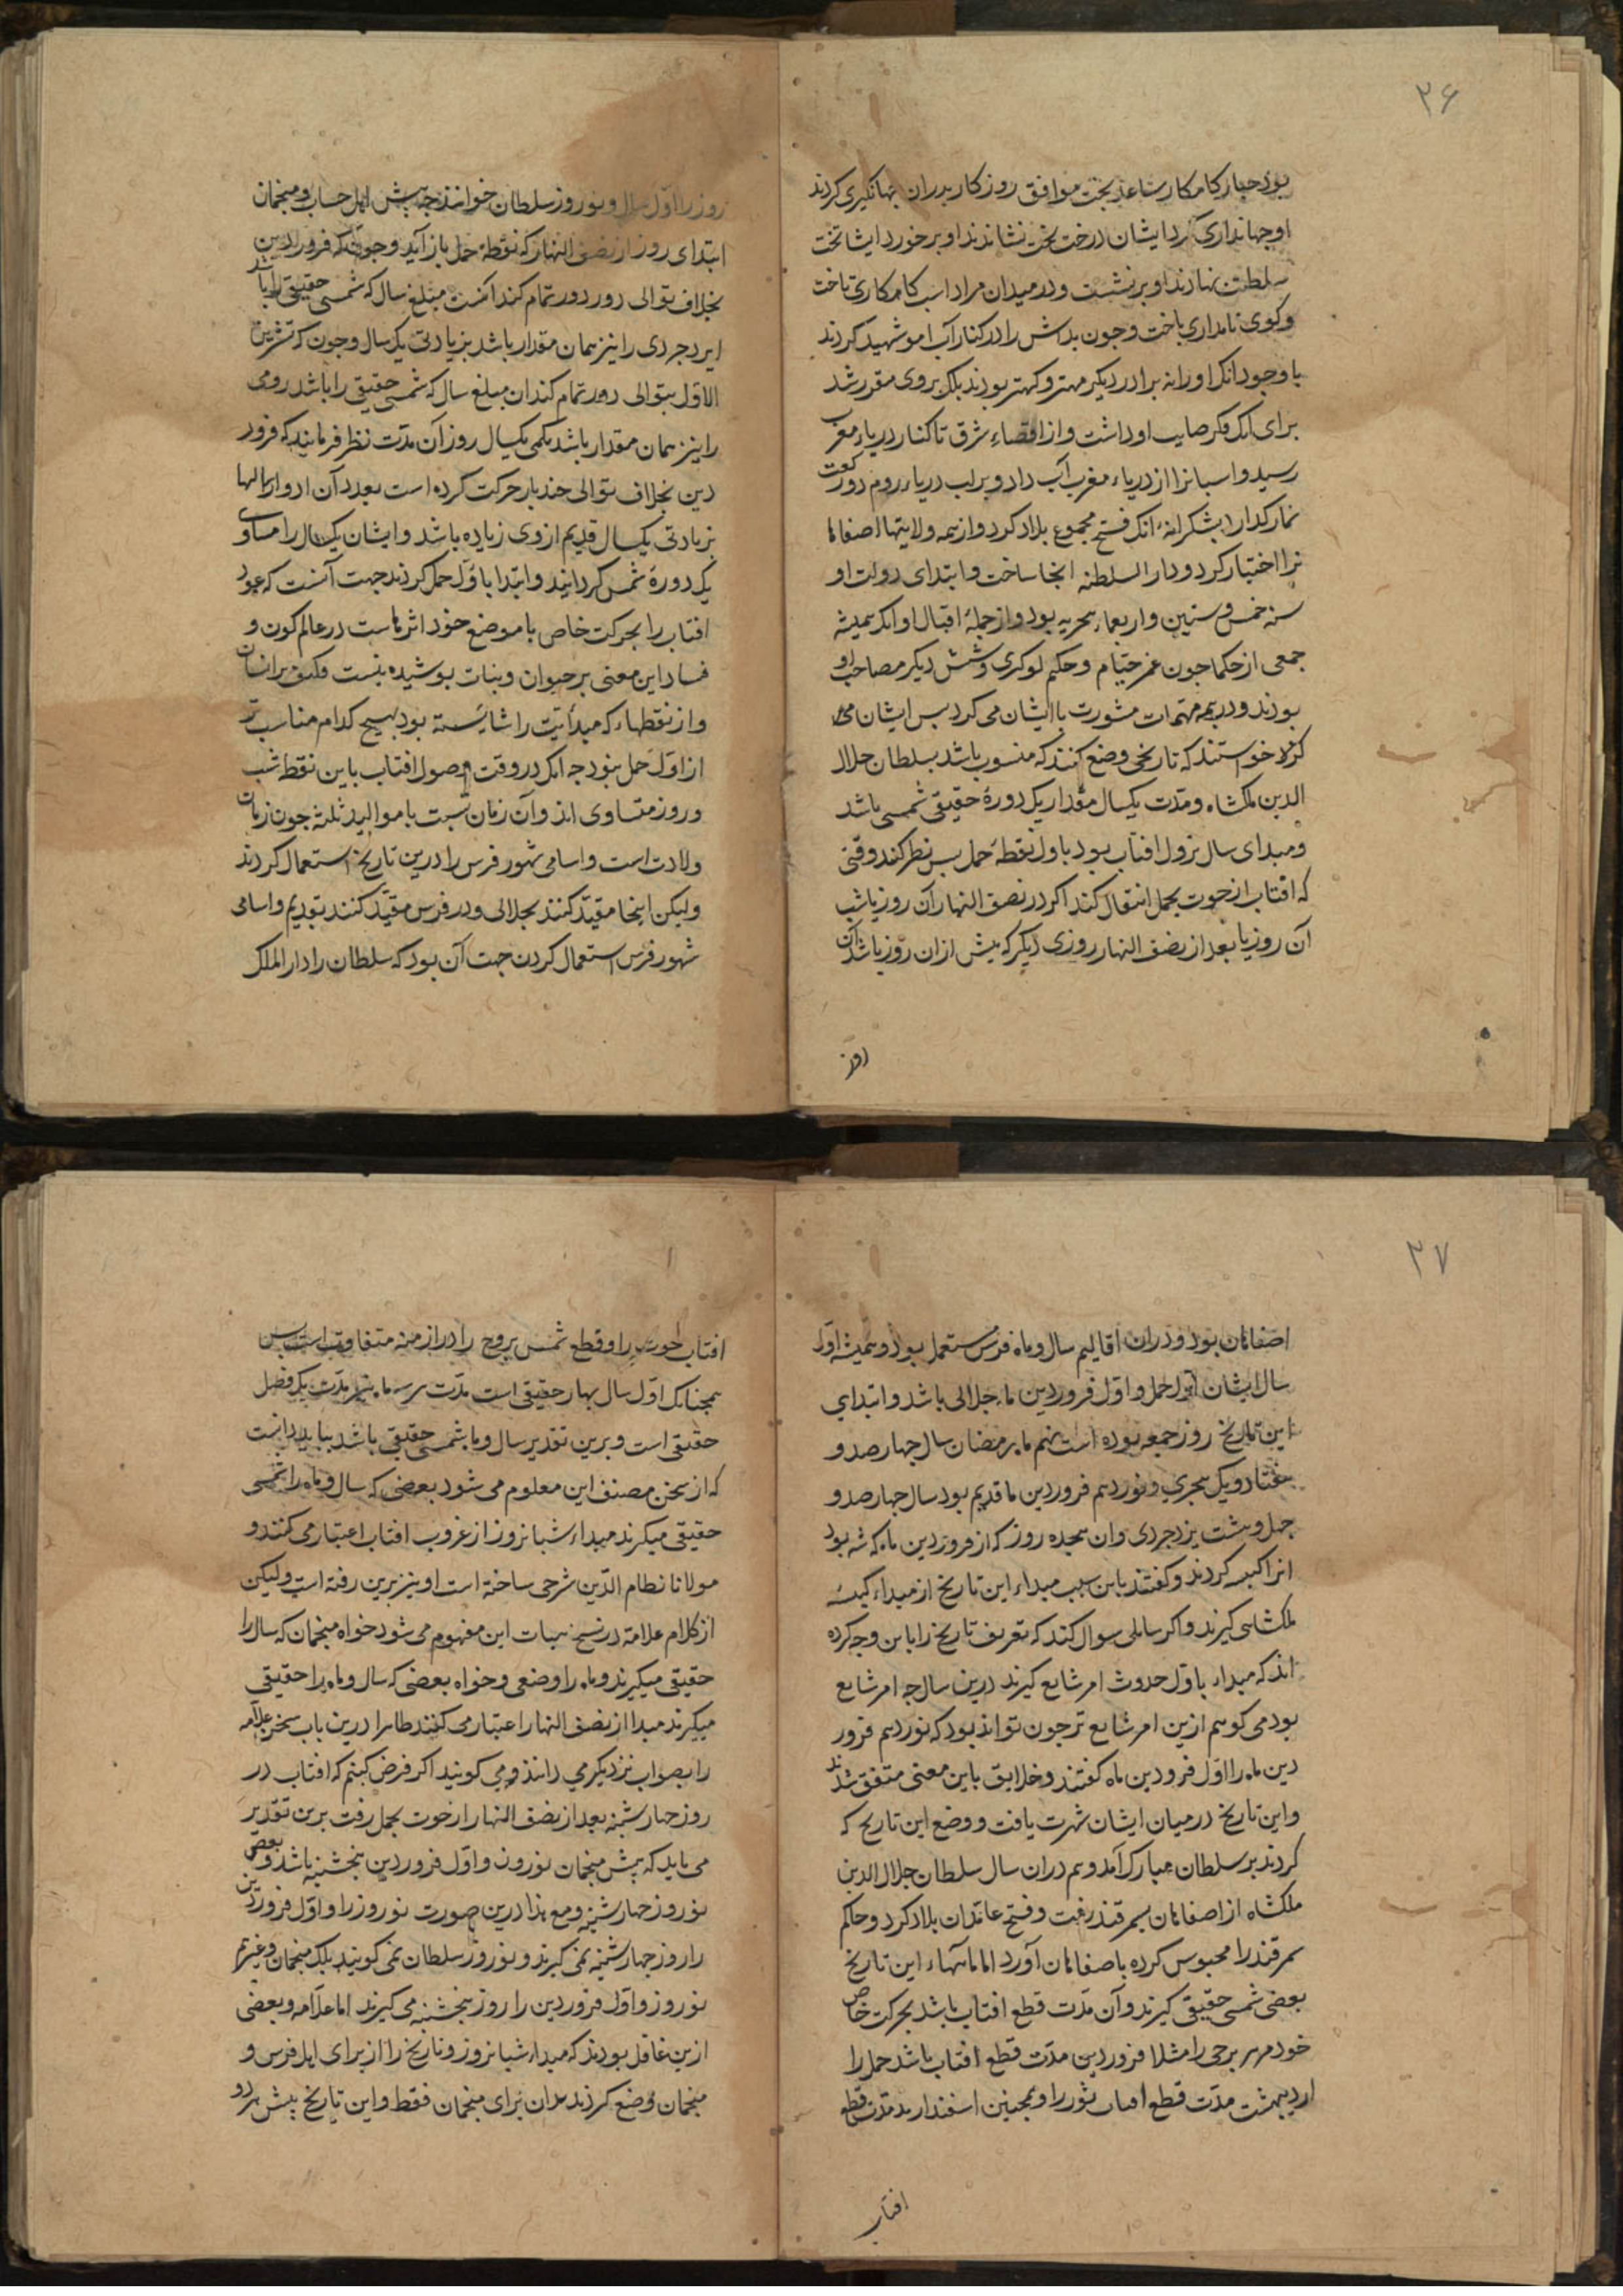 ۲۶
بود جبار کامکار ساعد بخت موافق روزکار پدران جهانکیری کردند
او جهانداری کرد ایشان درخت بخت نشاندند او بر خورد ایشان تخت
سلطنت نهادند او بر نشست و در میدان مراد اسب کامکاری تاخت
و کوی نامداری باخت و جون بدرش را در کنار آب امو شهید کردند
با وجود انک او را نه برادر دیکر مهتر و کهتر بودند بلک بروی مقرر شد
برای انک فکر صایب او داشت و از اقصاء شرق تا کنار دریاء مغرب
رسید و اسبانرا از دریاء مغرب آب داد و بر لب دریاء روم دو رکعت
نماز کدارد بشکرانهٔ انک فتح مجموع بلاد کرد و از همه ولایتها اصفاها
نرا اختیار کرد و دار السلطنه انجا ساخت و ابتدای دولت او
سنه خمس و ستین و اربعماء هجریه بود و از جملهٔ اقبال او انکه همیشه
جمعی از حکما جون عمر خیام و حکیم لوکری و شش دیکر مصاحب او
بودند و در همه مهتمات مشورت با ایشان می کرد بس ایشان می
خواستند که تاریخی وضع کنند که منسوب باشد بسلطان جلال
الدین ملکشاه و مدت یکسال مقدار یک دورهٔ حقیقی شمسی باشد
و مبدای سال نزول افتاب بود باول نقطهٔ حمل بس نظر کنند وقتی
که افتاب از حوت بحمل انتقال کند اکر در نصف النهار آن روز یا شب
آن روز یا بعد از نصف النهار روزی دیکر که بیش از ان روز باشد آن
روز
روز را اول سال و نوروز سلطان خوانند جه پیش اهل حساب و منجمان
ابتدای روز از نصف النهار که نقطهٔ حمل باز آید و جون که فروردین
بخلاف توالی دور دور تمام کند انست مبلغ سال که شمسی حقیقی را باشد
ایزدجردی را نیز همان مقدار باشد بزیادتی یک سال و جون که تشرین
الاول بتوالی دور تمام کند ان مبلغ سال که شمسی حقیقی را باشد رومی
را نیز همان مقدار باشد بکمی یکسال روز آن مدت نظر فرمایند که فرور
دین بخلاف توالی جند بار حرکت کرده است بعدد آن ادوار سالها
بزیادتی یکسال قدیم از وی زیاده باشد و ایشان یکسال را مساوی
یک دورهٔ شمس کردانیند و ابتدا باول حمل کردند جهت آنست که عود
افتاب را بحرکت خاص با موضع خود اثرهاست در عالم کون و
فساد این معنی بر حیوان و نبات بوشیده نیست فکیف بر انسان
و از نقطهاء که مبدأیت را شایسته بود هیج کدام مناسب تر
از اول حمل نبود جه انک در وقت وصول افتاب باین نقطه شب
و روز متساوی اند و آن زمان نسبت با موالید ثلثه جون زمان
ولادت است و اسامی شهور فرس را درین تاریخ استعمال کردند
ولیکن اینجا مقید کنند بجلالی و در فرس مقید کنند بقدیم و اسامی
شهور فرس استعمال کردن جهت آن بود که سلطان را دار الملک
۲۷
اصفاهان بود و در ان اقالیم سال و ماه فرس مستعمل بود و همیشه اول
سال ایشان اول حمل و اول فروردین ماه جلالی باشد و ابتدای
این تاریخ روز جمعه بوده است نهم ماه رمضان سال جهار صد و
هفتاد و یک هجری و نوزدهم فروردین ماه قدیم بود سال جهار صد و
جهل و هشت یزدجردی و ان هجده روز که از فروردین ماه کذشته بود
انرا کبیسه کردند و کفتند باین سبب مبداء این تاریخ از مبداء کبیسه
ملکشاهی کیرند و اکر سایلی سوال کند که تعریف تاریخ را باین وجه کرده
اند که مبداء باول حدوث امر شایع کیرند درین سال جه امر شایع
بود می کویم ازین امر شایع تر جون تواند بود که نوزدهم فرور
دین ماه را اول فروردین ماه کفتند و خلایق باین معنی متفق شدند
و این تاریخ در میان ایشان شهرت یافت و وضع این تاریخ که
کردند بر سلطان مبارک آمد و هم دران سال سلطان جلال الدین
ملکشاه از اصفاهان بسمرقند رفت و فتح عامهٔ ان بلاد کرد و حاکم
سمرقند را محبوس کرده باصفاهان آورد اما ماههاء این تاریخ
بعضی شمسی حقیقی کیرند و آن مدت قطع افتاب باشد بحرکت خاص
خود هر برجی را مثلا فروردین مدت قطع افتاب باشد حمل را
اردیبهشت مدت قطع افتاب ثور را و همجنین اسفندارمذ مدت قطع
افتاب
افتاب حوت را و قطع شمس بروج را در ازمنه متفاوت است بس
همجنانک اول سال بهار حقیقی است مدت هر سه ماه نیز مدت یک فصل
حقیقی است و برین تقدیر سال و ماه شمسی حقیقی باشد بباید دانست
که از سخن مصنف این معلوم می شود بعضی که سال و ماه را شمسی
حقیقی میکیرند مبداء شبانروز از غروب افتاب اعتبار می کنند و
مولانا نظام الدین شرحی ساخته است او نیز برین رفته است ولیکن
از کلام علامه در نسخ هیات این مفهوم می شود خواه منجمان که سال را
حقیقی میکیرند و ماه را وضعی و خواه بعضی که سال و ماه را حقیقی
میکیرند مبدا از نصف النهار اعتبار می کنند ظاهرا درین باب سخن علامه
را بصواب نزدیکتر می دانند و می کویند اکر فرض کنیم که افتاب در
روز جهار شنبه بعد از نصف النهار از حوت بحمل رفت برین تقدیر
می باید که پیش منجمان نوروز و اول فروردین پنجشنبه باشد و بعضی
نوروز جهارشنبه و مع هذا درین صورت نوروز را و اول فروردین
را روز جهارشنبه نمی کیرند و نوروز سلطان نمی کویند بلک منجمان و غیرهم
نوروز و اول فروردین را روز پنجشنبه می کیرند اما علامه و بعضی
ازین غافل بودند که مبداء شبانروز و تاریخ را از برای اهل فرس و
منجمان وضع کردند نه از برای منجمان فقط و این تاریخ پیش هر دو